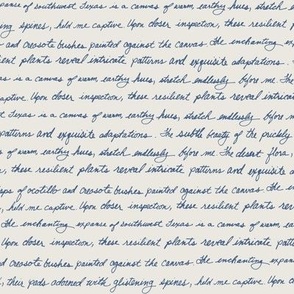 panse of southwest Texas is a canvas of warm earthy hues, stretch end
ng spines, hold me captive. Upon closer inspection, these resilient
and creosote bushes painted against the canvas. The enchanting exp
lient plants reveal intricate patterns and exquisite adaptations.
Texas is a canvas of warm earthy hues, stretch endlessly before me. The
captive. Upon closer inspection, these resilient plants reveal intricate
against the canvas. The enchanting expanse of southwest Texas is a canv
patterns and exquisite adaptations. The subtle beauty of the prickly
of warm earthy hues, stretch endlessly before me. The desert flora,
ction, these resilient plants reveal intricate patterns and exquisite ad
aps of ocotillo and creosote bushes painted against the canvas. The en
s, hold me captive. Upon closer inspection, these resilient plants rev
The enchanting expanse of southwest Texas is a canvas of warm e
Upon closer inspection, these resilient plants reveal intricate patterns
and creosote bushes painted against the canvas. The enchanting exp
l, their pads adorned with glistening spines, hold me captive. Upon